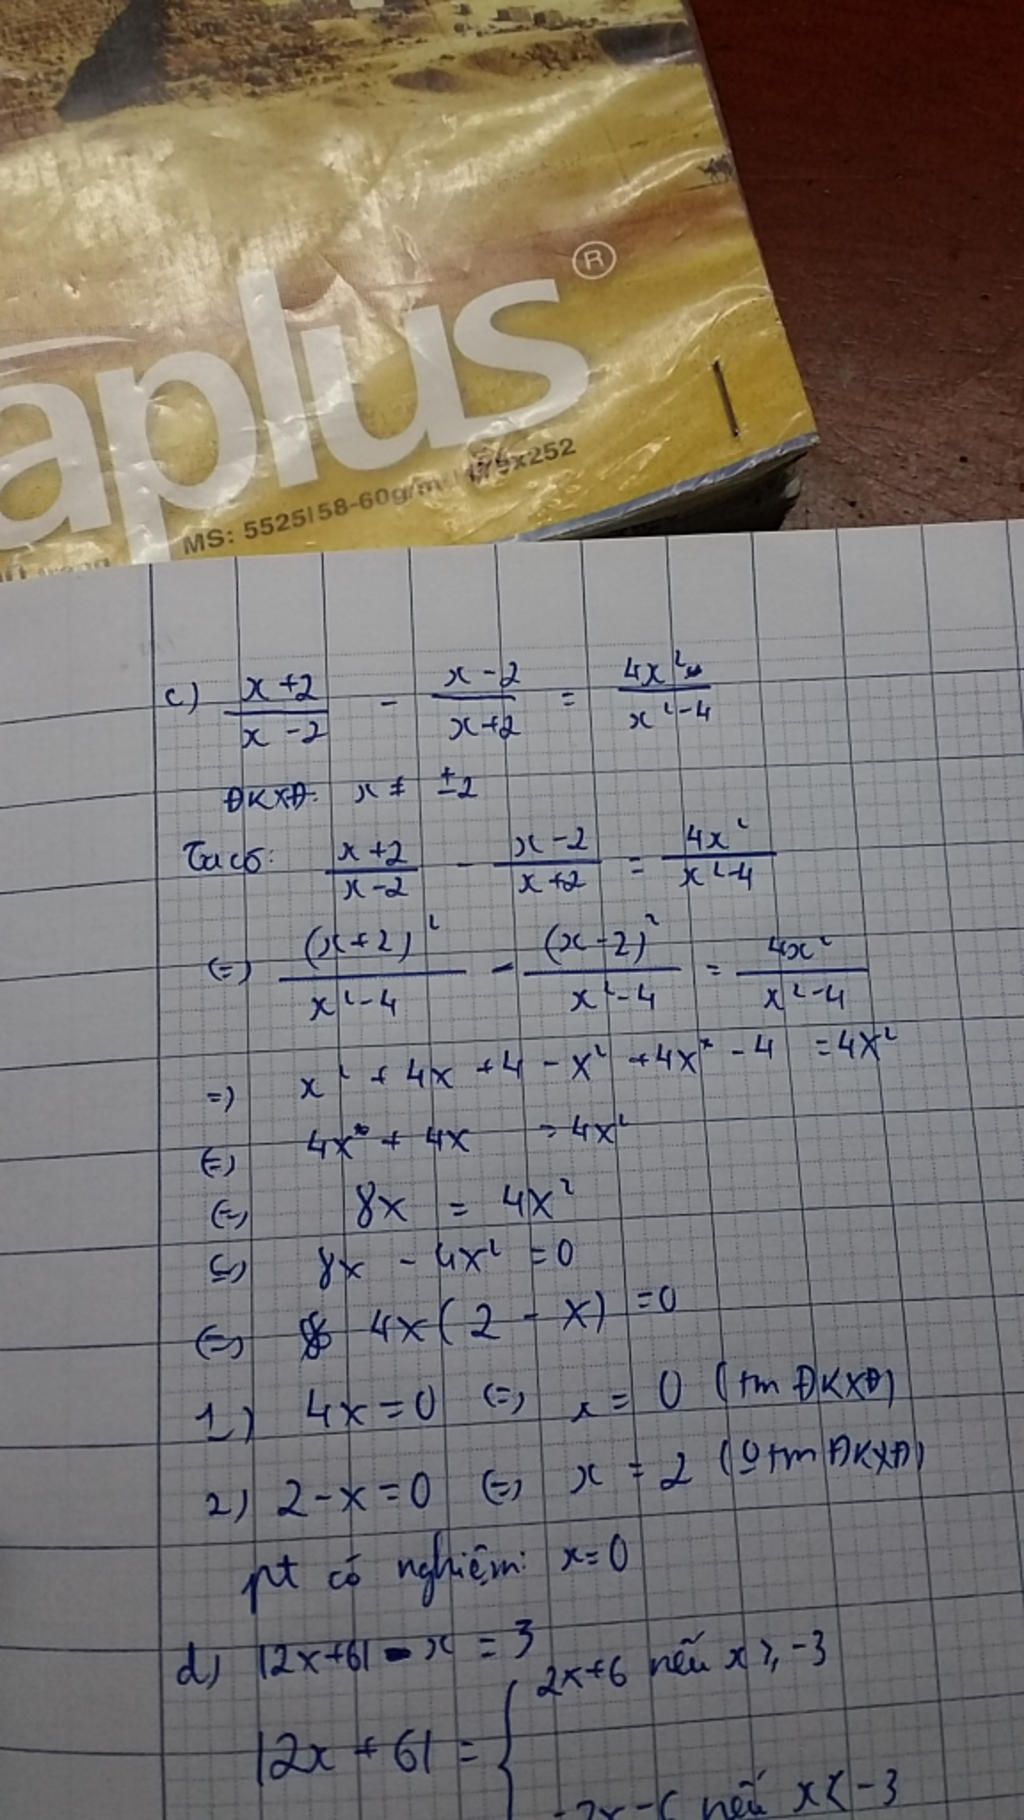 aplus®
MS: 5525 | 58-60g/m 179x252
c) \frac{x+2}{x-2} - \frac{x-2}{x+2} = \frac{4x²}{x²-4}
ĐKXĐ: x ≠ ±2
Ta có: \frac{x+2}{x-2} - \frac{x-2}{x+2} = \frac{4x²}{x²-4}
(=) \frac{(x+2)²}{x²-4} - \frac{(x-2)²}{x²-4} = \frac{4x²}{x²-4}
=) x² + 4x + 4 - x² + 4x - 4 = 4x²
(=) 4x + 4x = 4x²
(=) 8x = 4x²
(=) 8x - 4x² = 0
(=) 4x(2 - x) = 0
1) 4x = 0 (=) x = 0 (tm ĐKXĐ)
2) 2-x = 0 (=) x = 2 (0 tm ĐKXĐ)
pt có nghiệm: x=0
d) |2x+6| - x = 3
|2x + 6| = { 2x+6 nếu x ≥ -3
-2x-6 nếu x < -3